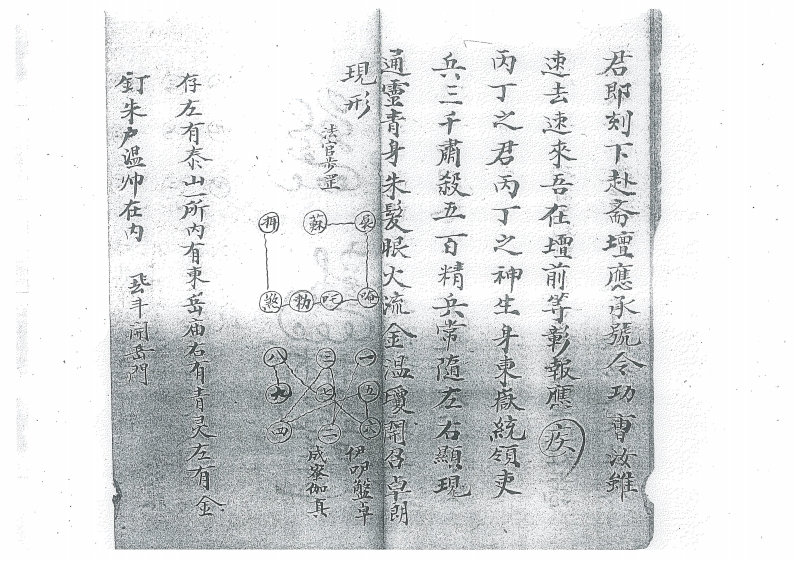 君即刻下赴斋壇應承號令功曹汝雖
速去速來吾在壇前等彰報應
丙丁之君丙丁之神生身東嶽統領吏
兵三千肅殺五百精兵常隨左右顯現
通靈青身朱髮眼火流金温瓊開召卓朗
現形
法官步罡
蘇
吒
煞
一
五
六
三
七
二
八
九
四
伊叩盤卓
成峯伽真
存左有泰山一所内有東岳庙右有青灵左有金
釘朱户温帅在内
斗開岳門